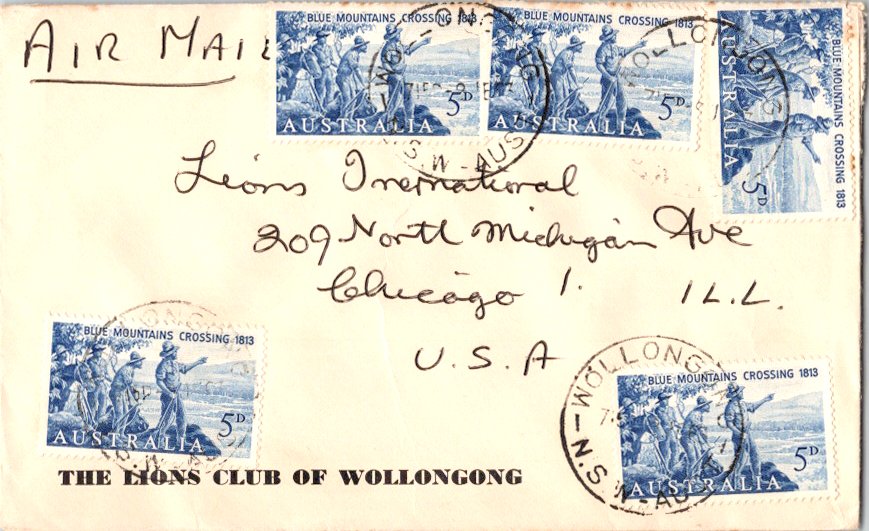 AIR MAIL
BLUE MOUNTAINS CROSSING 1813
5D
AUSTRALIA
BLUE MOUNTAINS CROSSING 1813
5D
AUSTRALIA
BLUE MOUNTAINS CROSSING 1813
5D
AUSTRALIA
WOLLONGONG
N.S.W-AUST
WOLLONGONG
Lions Inernational
209 North Michigan Ave
Chicago 1. ILL.
U.S.A
BLUE MOUNTAINS CROSSING 1813
5D
AUSTRALIA
BLUE MOUNTAINS CROSSING 1813
5D
AUSTRALIA
WOLLONGONG
N.S.W-AUST
THE LIONS CLUB OF WOLLONGONG